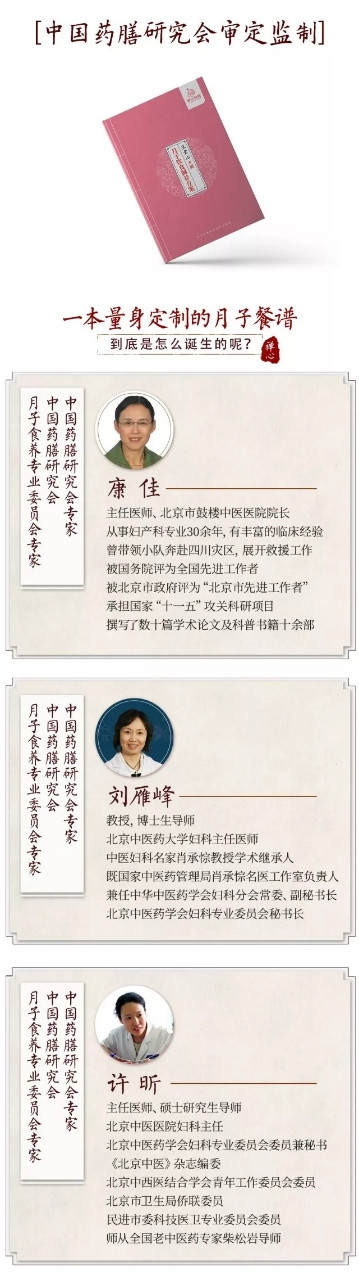 [中国药膳研究会审定监制]
月子餐食调养方案
一本量身定制的月子餐谱
到底是怎么诞生的呢？
禅心
中国药膳研究会专家
中国药膳研究会
月子食养专业委员会专家
康佳
主任医师、北京市鼓楼中医医院院长
从事妇产科专业30余年，有丰富的临床经验
曾带领小队奔赴四川灾区，展开救援工作
被国务院评为全国先进工作者
被北京市政府评为“北京市先进工作者”
承担国家“十一五”攻关科研项目
撰写了数十篇学术论文及科普书籍十余部
中国药膳研究会专家
中国药膳研究会
月子食养专业委员会专家
刘雁峰
教授，博士生导师
北京中医药大学妇科主任医师
中医妇科名家肖承悰教授学术继承人
既国家中医药管理局肖承悰名医工作室负责人
兼任中华中医药学会妇科分会常委、副秘书长
北京中医药学会妇科专业委员会秘书长
中国药膳研究会专家
中国药膳研究会
月子食养专业委员会专家
许昕
主任医师、硕士研究生导师
北京中医医院妇科主任
北京中医药学会妇科专业委员会委员兼秘书
《北京中医》杂志编委
北京中西医结合学会青年工作委员会委员
北京市卫生局侨联委员
民进市委科技医卫专业委员会委员
师从全国老中医药专家柴松岩导师